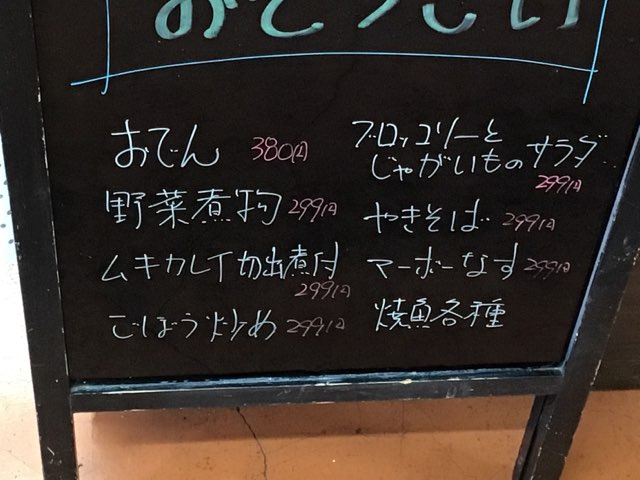 おそうざい
おでん 380円
野菜煮物 299円
ムキカレイ切出煮付
299円
ごぼう炒め 299円
ブロッコリーと
じゃがいものサラダ
299円
やきそば 299円
マーボーなす 299円
焼魚各種